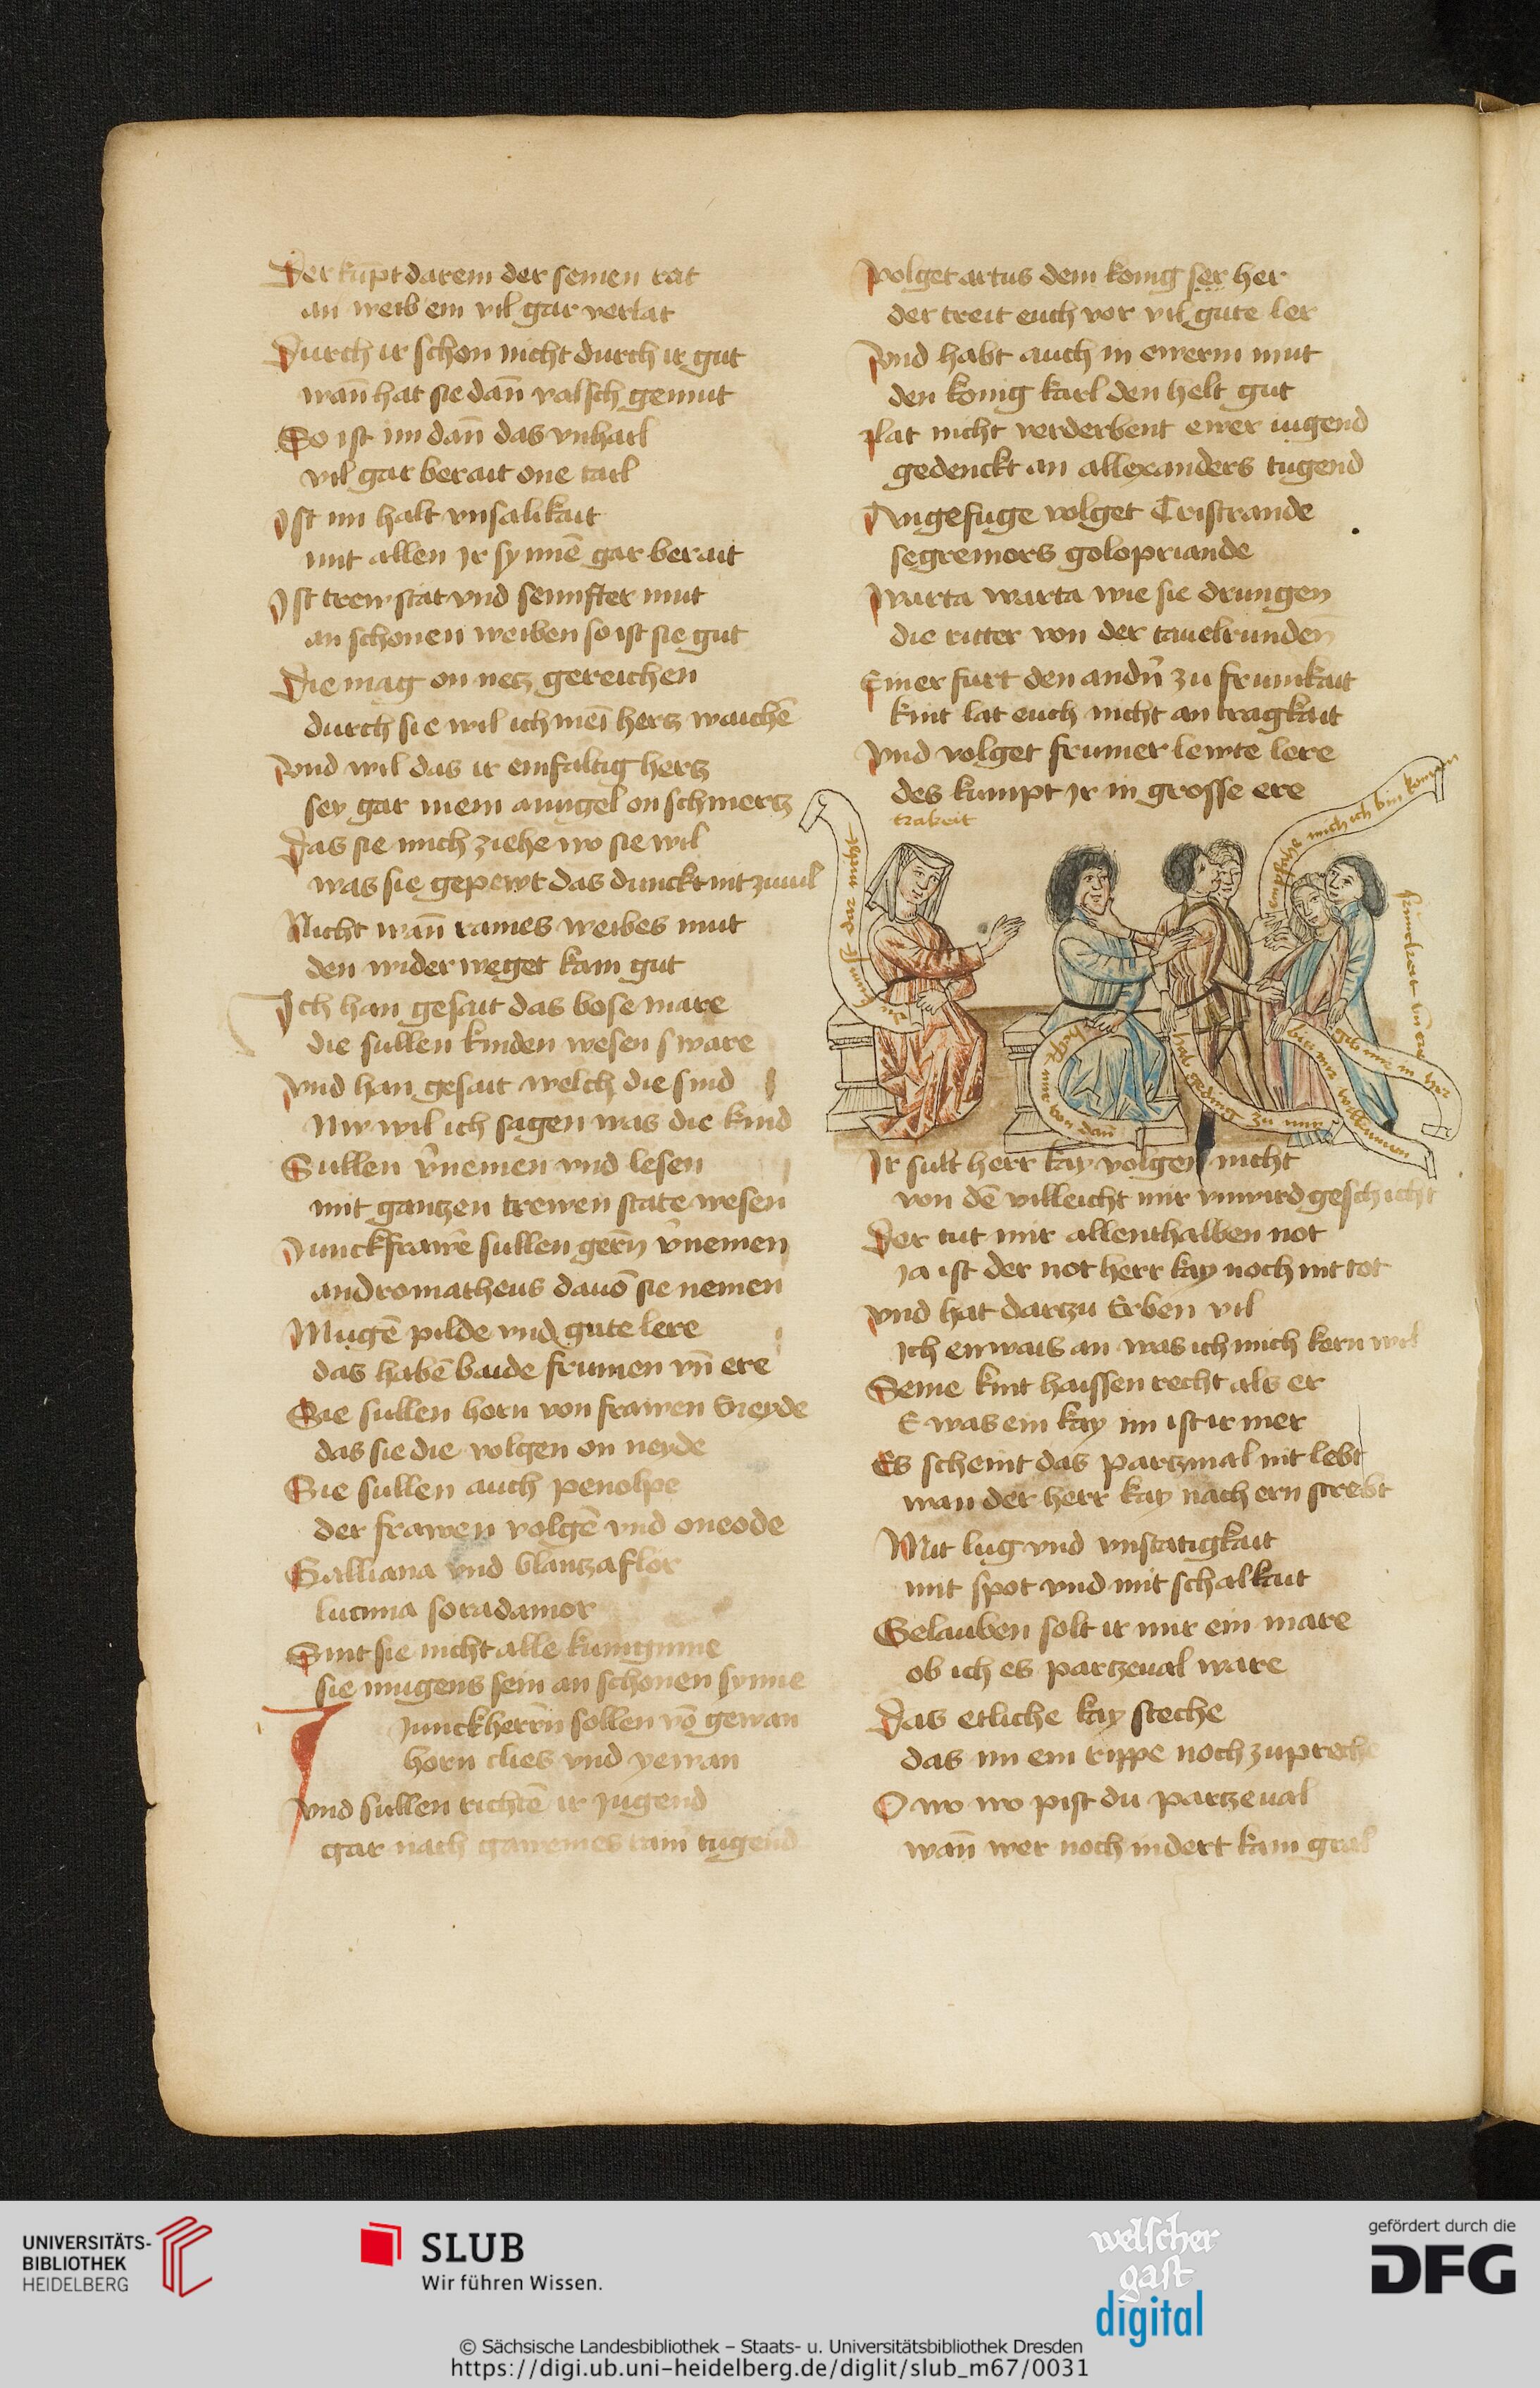 Der kūpt darein der seinen rat
an weib ein vil gar verlat
Durch ir schon nicht durch ir gut
wañ hat sie dañ valsch gemut
So ist im dañ das vnhail
vil gar berait one tail
Ist im halt vnsalikait
mit allen Ir synnē gar berait
Ist trew stat vnd sennfter mut
an schonen weiben so ist sie gut
Die mag on netz gereichen
durch sie wil ich mei hertz waichē
Vnd wil das ir einfaltig hertz
sey gar mein anngel on schmertz
Das sie mich ziehe wo sie wil
was sie gepewt das dunckt nit zuuil
Nicht wañ raines weibes mut
den wider weget kain gut
Ich han gesait das bose mare
die sullen kinden wesen sware
Vnd han gesait welch die sind
Nw wil ich sagen was die kind
Sullen v̄nemen vnd lesen
mit gantzen trewen state wesen
Junckfrawē sullen gern v̄nemen
andromatheus dauō sie nemen
Mugē pilde vnd gute lere
das habē baide frumen vñ ere
Sie sullen horn von frawen Eneyde
das sie die volgen on neyde
Sie sullen auch penolpe
der frawen volgē vnd oneode
Galliana vnd blantzaflor
lucinia soradamor
Sint sie nicht alle kuniginne
sie mugens sein an schonen synne
Junckherrn sollen vō gewan
horn clies vnd yewan
Vnd sullen richtē ir Jugend
gar nach gaweines rain tugend
Volget artus dem konig ser her
der treit euch vor vil gute ler
Vnd habt auch in ewerm mut
den konig karl den helt gut
Lat nicht verderbent ewer iugend
gedenckt an allexanders tugend
Angefuge volget Tristrande
segremors golopriande
Warta warta wie sie drungen
die ritter von der tauelrunden
Einer furt den andñ zu frumkait
kint lat euch nicht an tragkait
Vnd volget frumer lewte lere
des kumpt Ir in grosse ere
trakeit
du kumst dar nicht
empfahe mich ich bin komen
hab geding zu mir
bis mir willkumen
Ir sult herr kay volgen nicht
von dē villeicht mir vnwird geschicht
Der tut mir allenthalben not
Ja ist der not herr kay noch nit tot
Vnd hat dartzu Erben vil
Ich enwais an was ich mich kern wil
Seine kint haissen recht als er
E was ein kay im ist ir mer
Es scheint das partzinal nit lebt
wan der herr kay nach ern strebt
Mit lug vnd vnstatigkait
mit spot vnd mit schalkait
Gelauben solt ir mir ein mare
ob ich es partzeual ware
Das etliche kay steche
das im ein rippe noch zupreche
O wo wo pist du partzeual
wañ wer noch indert kain gral
UNIVERSITÄTS-
BIBLIOTHEK
HEIDELBERG
SLUB
Wir führen Wissen.
welscher
gast
digital
gefördert durch die
DFG
© Sächsische Landesbibliothek – Staats- u. Universitätsbibliothek Dresden
https://digi.ub.uni-heidelberg.de/diglit/slub_m67/0031